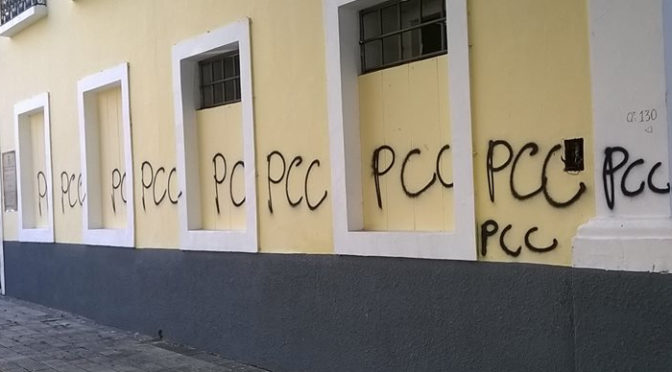 P PCC PC PCC PC PCC PCC PCC PCC
PCC
a: 130